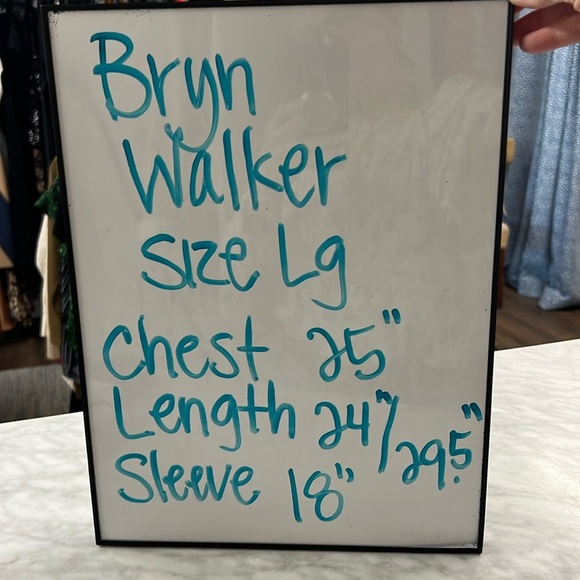 Bryn
Walker
size Lg
Chest 25"
Length 24"/29.5"
Sleeve 18"